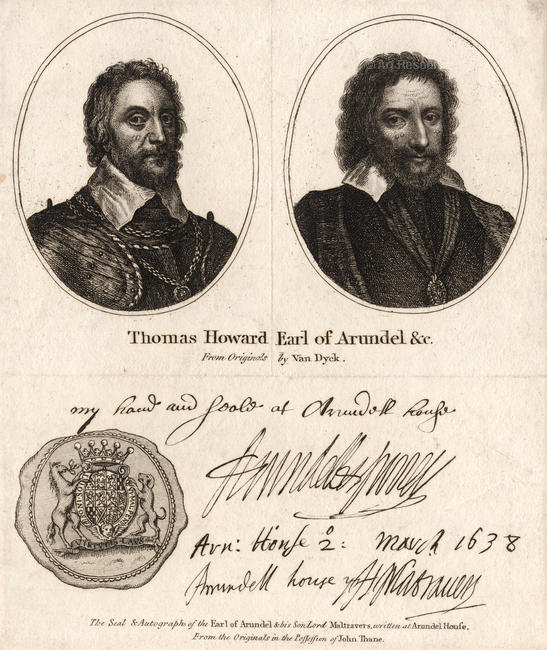 Thomas Howard Earl of Arundel &c.
From Originals by Van Dyck.
my hand and Seale at Arundell house
Arundell
Arn: House 2: March 1638
Arundell house
H Maltravers
The Seal & Autograph of the Earl of Arundel & his Son Lord Maltravers, written at Arundel House,
From the Originals in the Possession of John Thane.